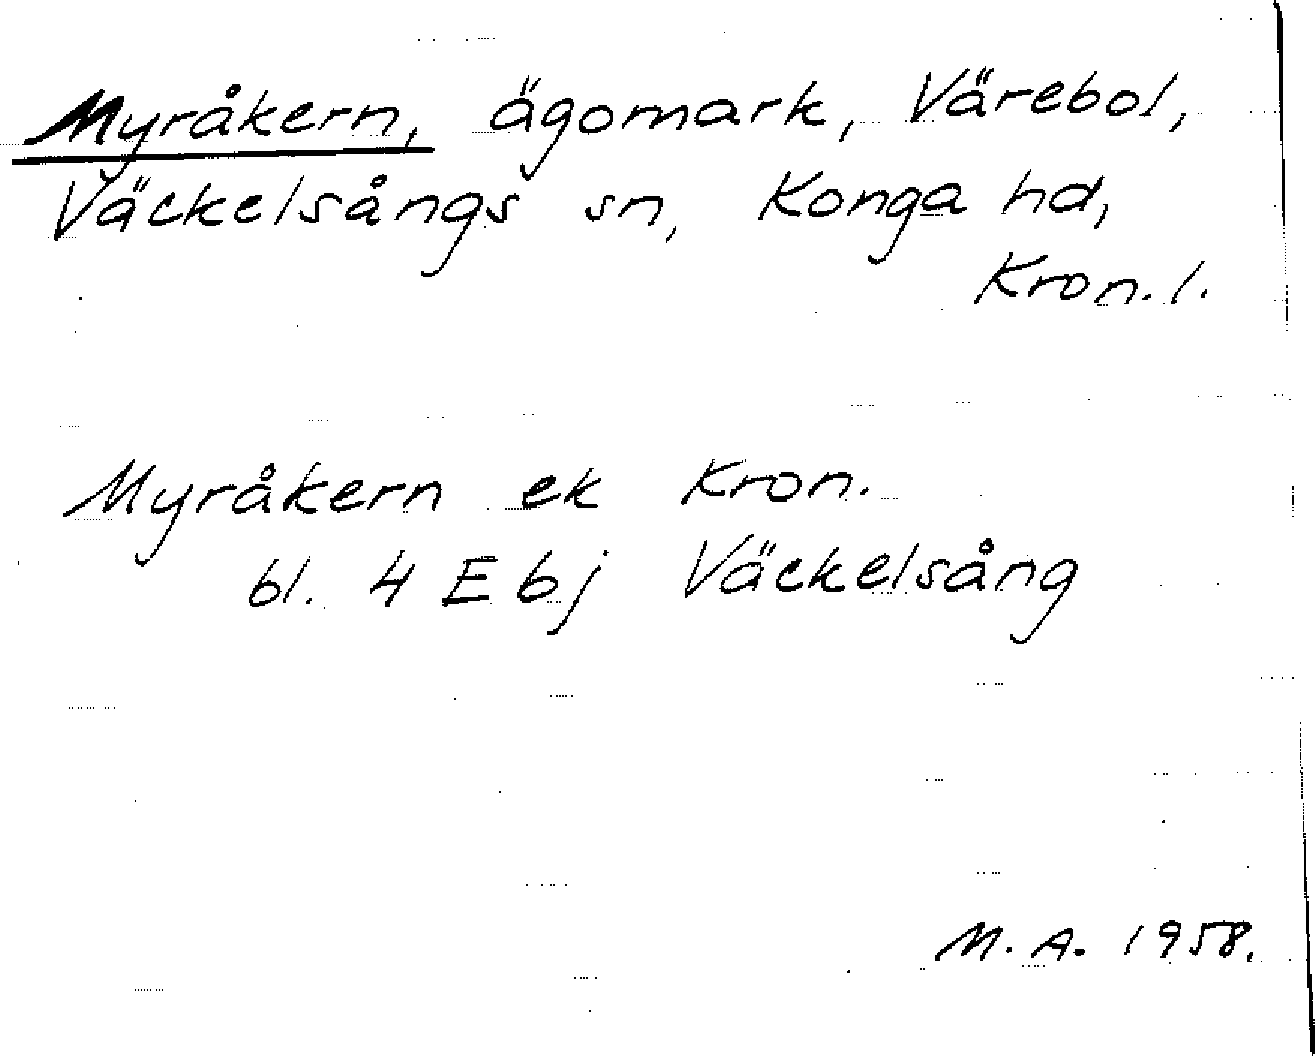 Myråkern, ägomark, Värebol,
Väckelsångs sn, Konga hd,
Kron. l.
Myråkern ek Kron.
bl. 4 E bj Väckelsång
M. A. 1958.